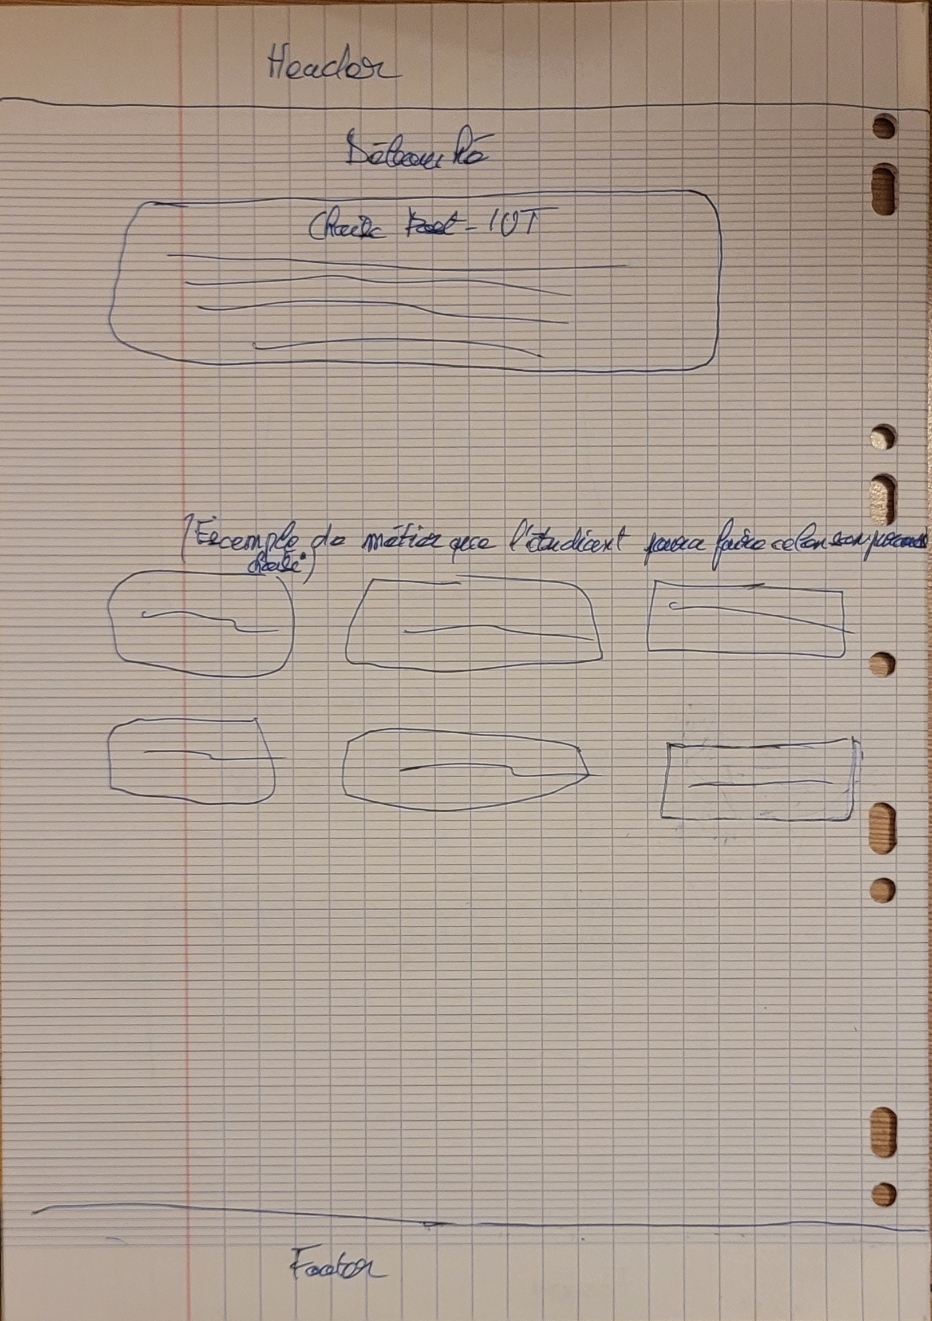 Header
Débouché
Choix Post-IUT
(Exemple de métier que l'étudiant pourra faire selon son parcours
choisi)
Footer